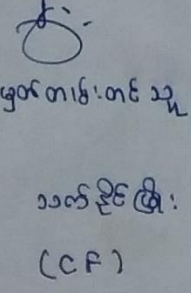 မှတ်တမ်းတင်သူ
သက်နိုင်ဖြိုး
(CF)